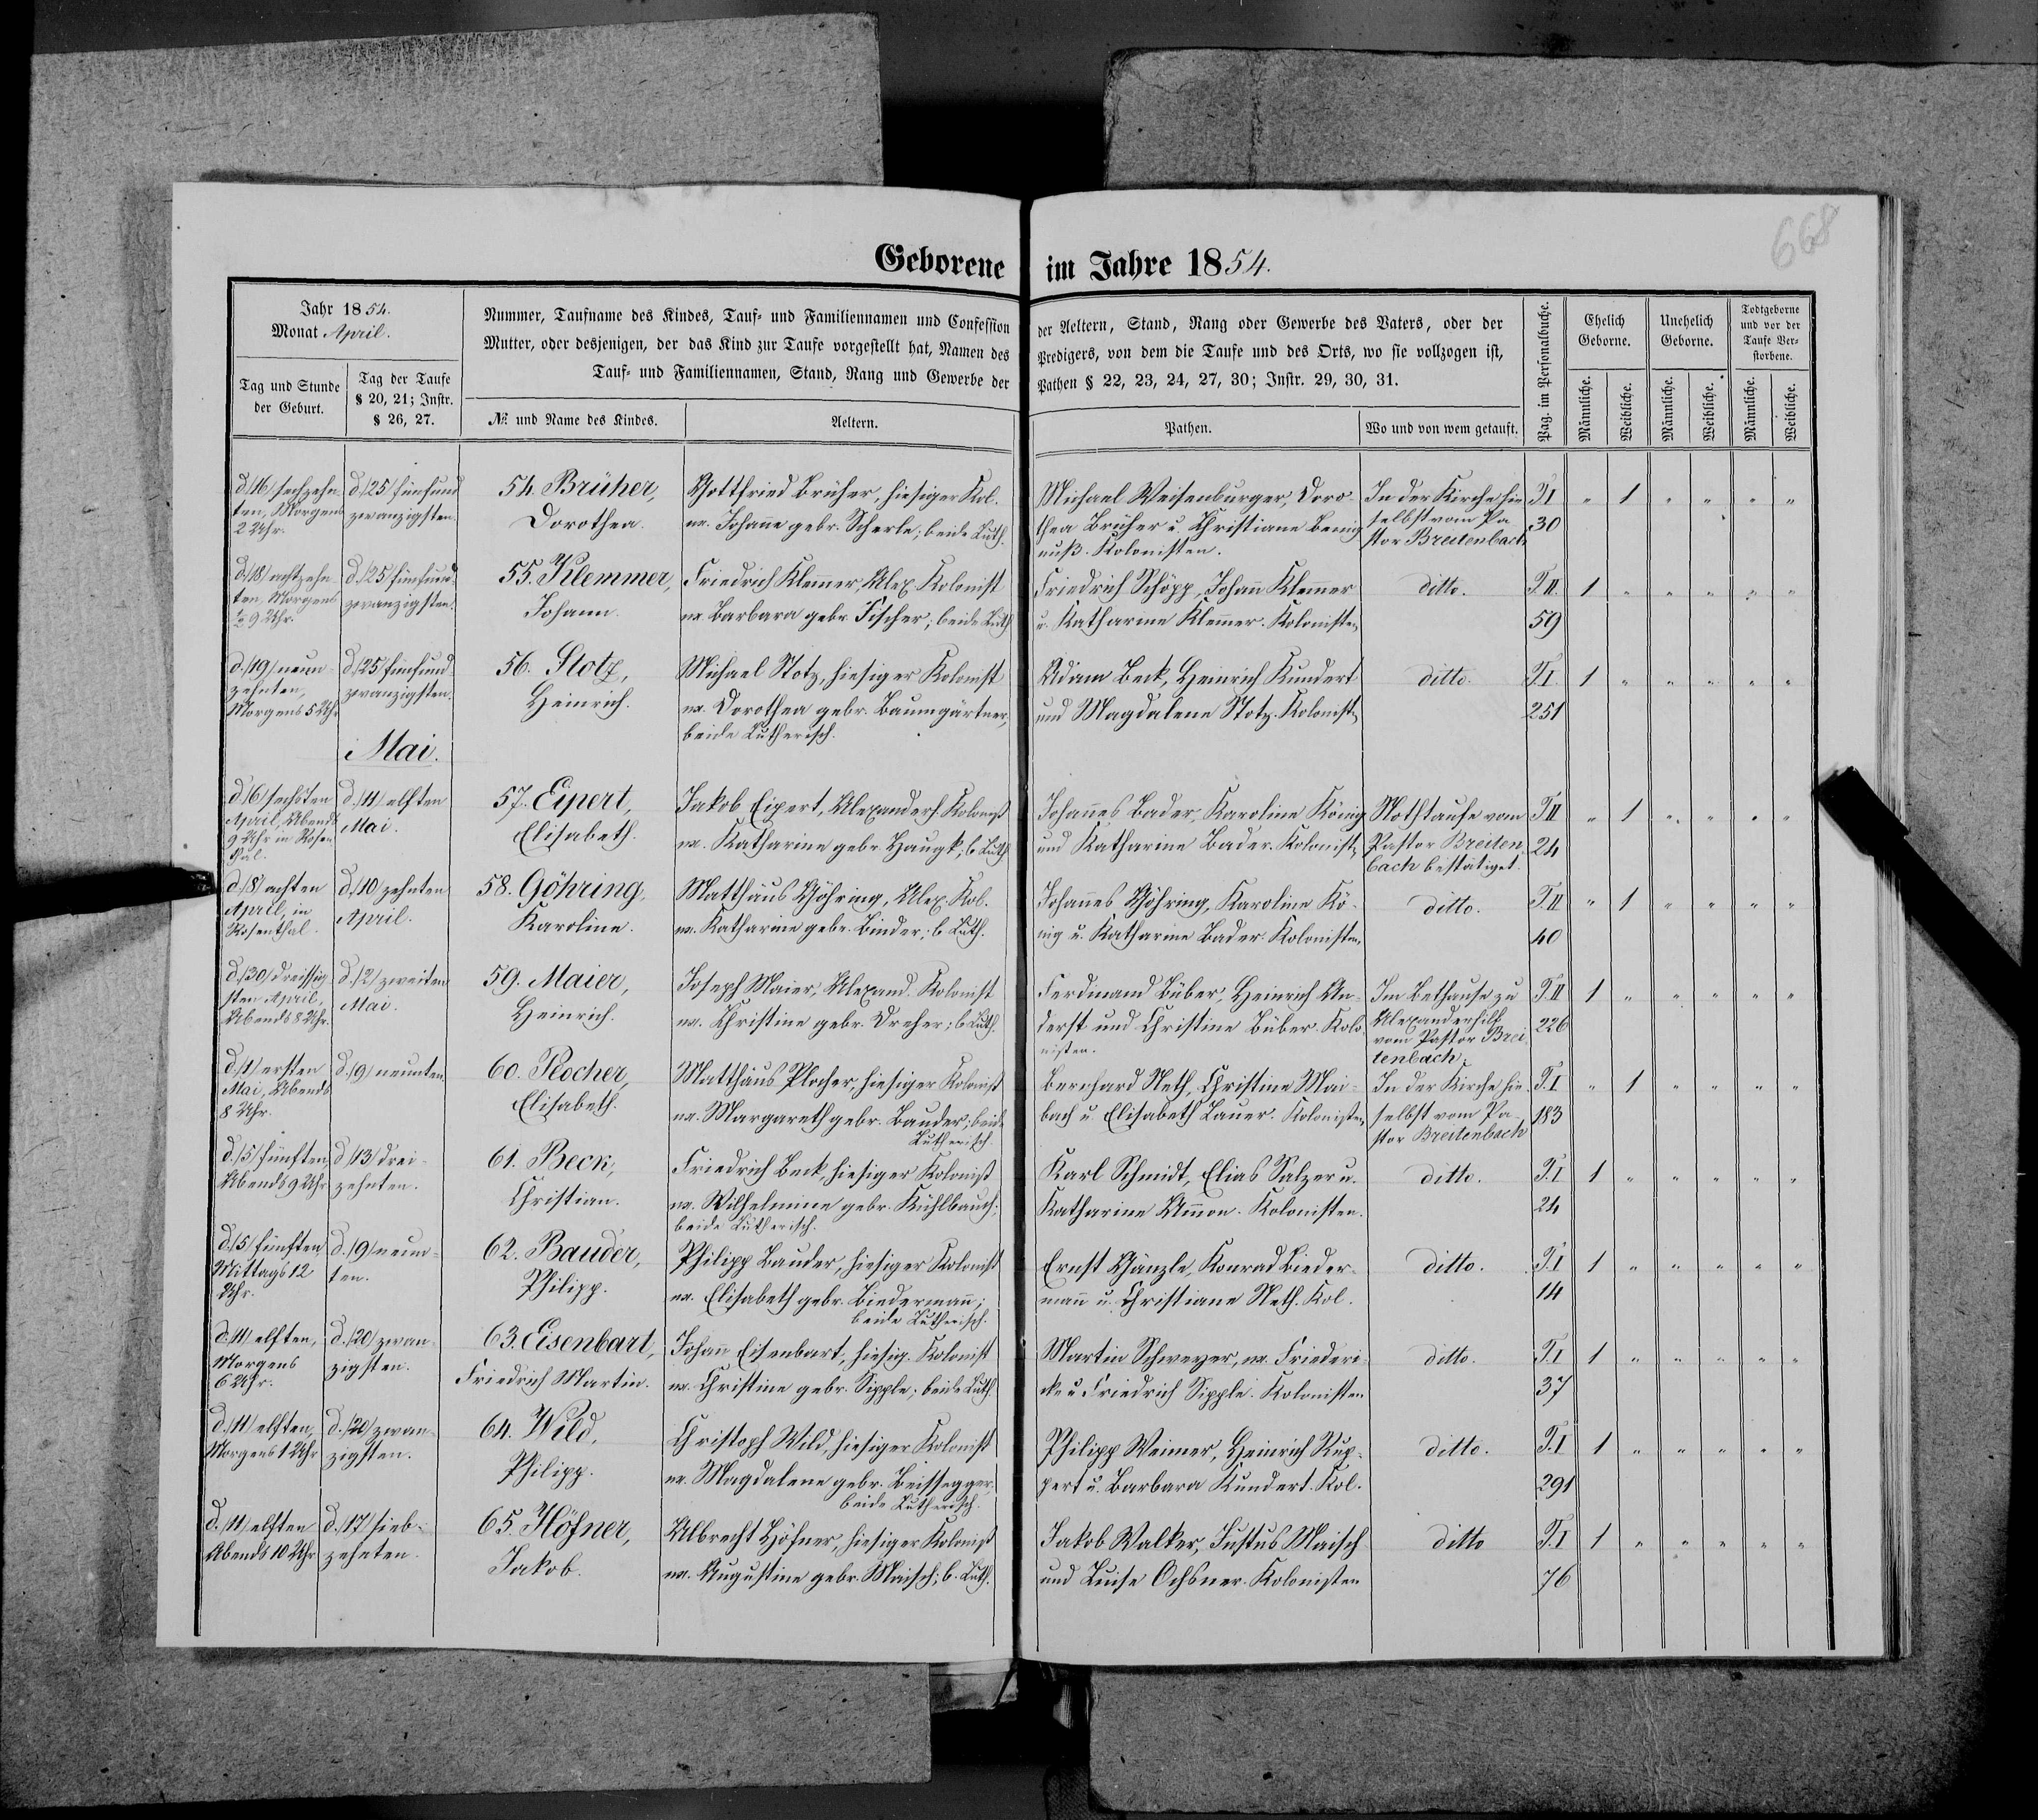 668
Geborene im Jahre 1854.
Jahr 1854.
Monat April.
Tag und Stunde
der Geburt.
Tag der Taufe
§ 20, 21; Instr.
§ 26, 27.
Nummer, Taufname des Kindes, Tauf- und Familiennamen und Confession
Mutter, oder desjenigen, der das Kind zur Taufe vorgestellt hat, Namen des
Tauf- und Familiennamen, Stand, Rang und Gewerbe der
№ und Name des Kindes.
Aeltern.
der Aeltern, Stand, Rang oder Gewerbe des Vaters, oder der
Predigers, von dem die Taufe und des Orts, wo sie vollzogen ist,
Pathen § 22, 23, 24, 27, 30; Instr. 29, 30, 31.
Pathen.
Wo und von wem getauft.
Pag. im Personalbuche.
Ehelich
Geborne.
Unehelich
Geborne.
Todtgeborne
und vor der
Taufe Ver-
storbene.
Männliche.
Weibliche.
Männliche.
Weibliche.
Männliche.
Weibliche.
d./16/ sechzehn-
ten, Morgens
2 Uhr.
d./25/ fünfund
zwanzigsten.
54. Brüher,
Dorothea.
Gottfried Brüher, hiesiger Kol.
ux. Johanne gebr. Scherle; beide Luth.
Michael Weisenburger, Doro-
thea Brüher u. Christiane Benig-
nuß. Kolonisten.
In der Kirche hie-
selbst vom Pa-
stor Breitenbach
T.I
30
" 1 " " " "
d./18/ achtzehn
ten, Morgens
½ 9 Uhr.
d./25/ fünfund-
zwanzigsten.
55. Klemmer,
Johann.
Friedrich Klemmer, Alex. Kolonist
ux. Barbara gebr. Fischer; beide Luth
Friedrich Schöpp, Johann Klemmer
u. Katharine Klemmer. Kolonisten
ditto.
T.II.
59
1 " " " " "
d./19/ neun-
zehnten,
Morgens 5 Uhr
d./25/ fünfund-
zwanzigsten.
56. Stotz,
Heinrich.
Michael Stotz, hiesiger Kolonist
ux. Dorothea gebr. Baumgärtner,
beide Lutherisch.
Adam Beck, Heinrich Kundert
und Magdalene Stotz. Kolonist
ditto.
T.I.
251
1 " " " " "
Mai.
d./6/ sechsten
April, Abends
9 Uhr in Rosen
thal.
d./11/ elften
Mai.
57. Eipert,
Elisabeth.
Jakob Eipert, Alexanderh. Kolonist
ux. Katharine gebr. Haugk; b. Luth
Johannes Bader, Karoline König
und Katharine Bader. Kolonist
Nothtaufe vom
Pastor Breiten
bach bestätiget.
T.II
24
" 1 " " " "
d./8/ achten
April, in
Rosenthal.
d./10/ zehnten
April.
58. Göhring,
Karoline.
Matthäus Göhring, Alex. Kol.
ux. Katharine gebr. Binder; b. Luth.
Johannes Göhring, Karoline Kö-
nig u. Katharine Bader. Kolonisten
ditto.
T.II
40
" 1 " " " "
d./30/ dreissig
sten April,
Abends 8 Uhr.
d./2/ zweiten
Mai.
59. Maier,
Heinrich.
Joseph Maier, Alexand. Kolonist
ux. Christine gebr. Dreher; b. Luth.
Ferdinand Büber, Heinrich An-
derst und Christine Büber. Kolo
nisten.
Im Bethause zu
Alexanderhilf
vom Pastor Brei
tenbach.
T.II
226
1 " " " " "
d./1/ ersten
Mai, Abends
8 Uhr.
d./9/ neunten
60. Plocher,
Elisabeth.
Matthäus Plocher, hiesiger Kolonist
ux. Margareth gebr. Bauder; beide
Lutherisch.
Bernhard Neth, Christine Mai-
bach u. Elisabeth Bauer. Kolonisten
In der Kirche hie-
selbst vom Pa-
stor Breitenbach
T.I
183
" 1 " " " "
d./5/ fünften
Abends 9 Uhr
d./13/ drei-
zehnten.
61. Beck,
Christian.
Friedrich Beck, hiesiger Kolonist
ux. Wilhelmine gebr. Kühlbauch;
beide Lutherisch.
Karl Schmidt, Elias Salzer u.
Katharine Ammon. Kolonisten.
ditto.
T.I
24
1 " " " " "
d./5/ fünften
Mittags 12
Uhr.
d./9/ neun-
ten.
62. Bauder,
Philipp.
Philipp Bauder, hiesiger Kolonist
ux. Elisabeth gebr. Biedermann;
beide Lutherisch.
Ernst Gänzle, Konrad Bieder-
mann u. Christiane Neth. Kol.
ditto.
T.I
14
1 " " " " "
d./11/ elften,
Morgens
6 Uhr.
d./20/ zwan
zigsten.
63. Eisenbart,
Friedrich Martin.
Johann Eisenbart, hiesig. Kolonist
ux. Christine gebr. Sipple; beide Luth.
Martin Schweyer, ux. Friederi-
cke u. Friedrich Sipple. Kolonisten
ditto.
T.I
37
1 " " " " "
d./11/ elften,
Morgens 1 Uhr
d./20/ zwan
zigsten.
64. Wild,
Philipp.
Christoph Wild, hiesiger Kolonist
ux. Magdalene gebr. Beissegger,
beide Lutherisch.
Philipp Weimer, Heinrich Rup-
pert u. Barbara Kundert. Kol.
ditto.
T.I
291
1 " " " " "
d./11/ elften
Abends 10 Uhr
d./17/ sieb-
zehnten.
65. Höfner,
Jakob.
Albrecht Höfner, hiesiger Kolonist
ux. Augustine gebr. Maisch; b. Luth.
Jakob Walker, Justus Maisch
und Luise Ochsner. Kolonisten
ditto
T.I
76
1 " " " " "